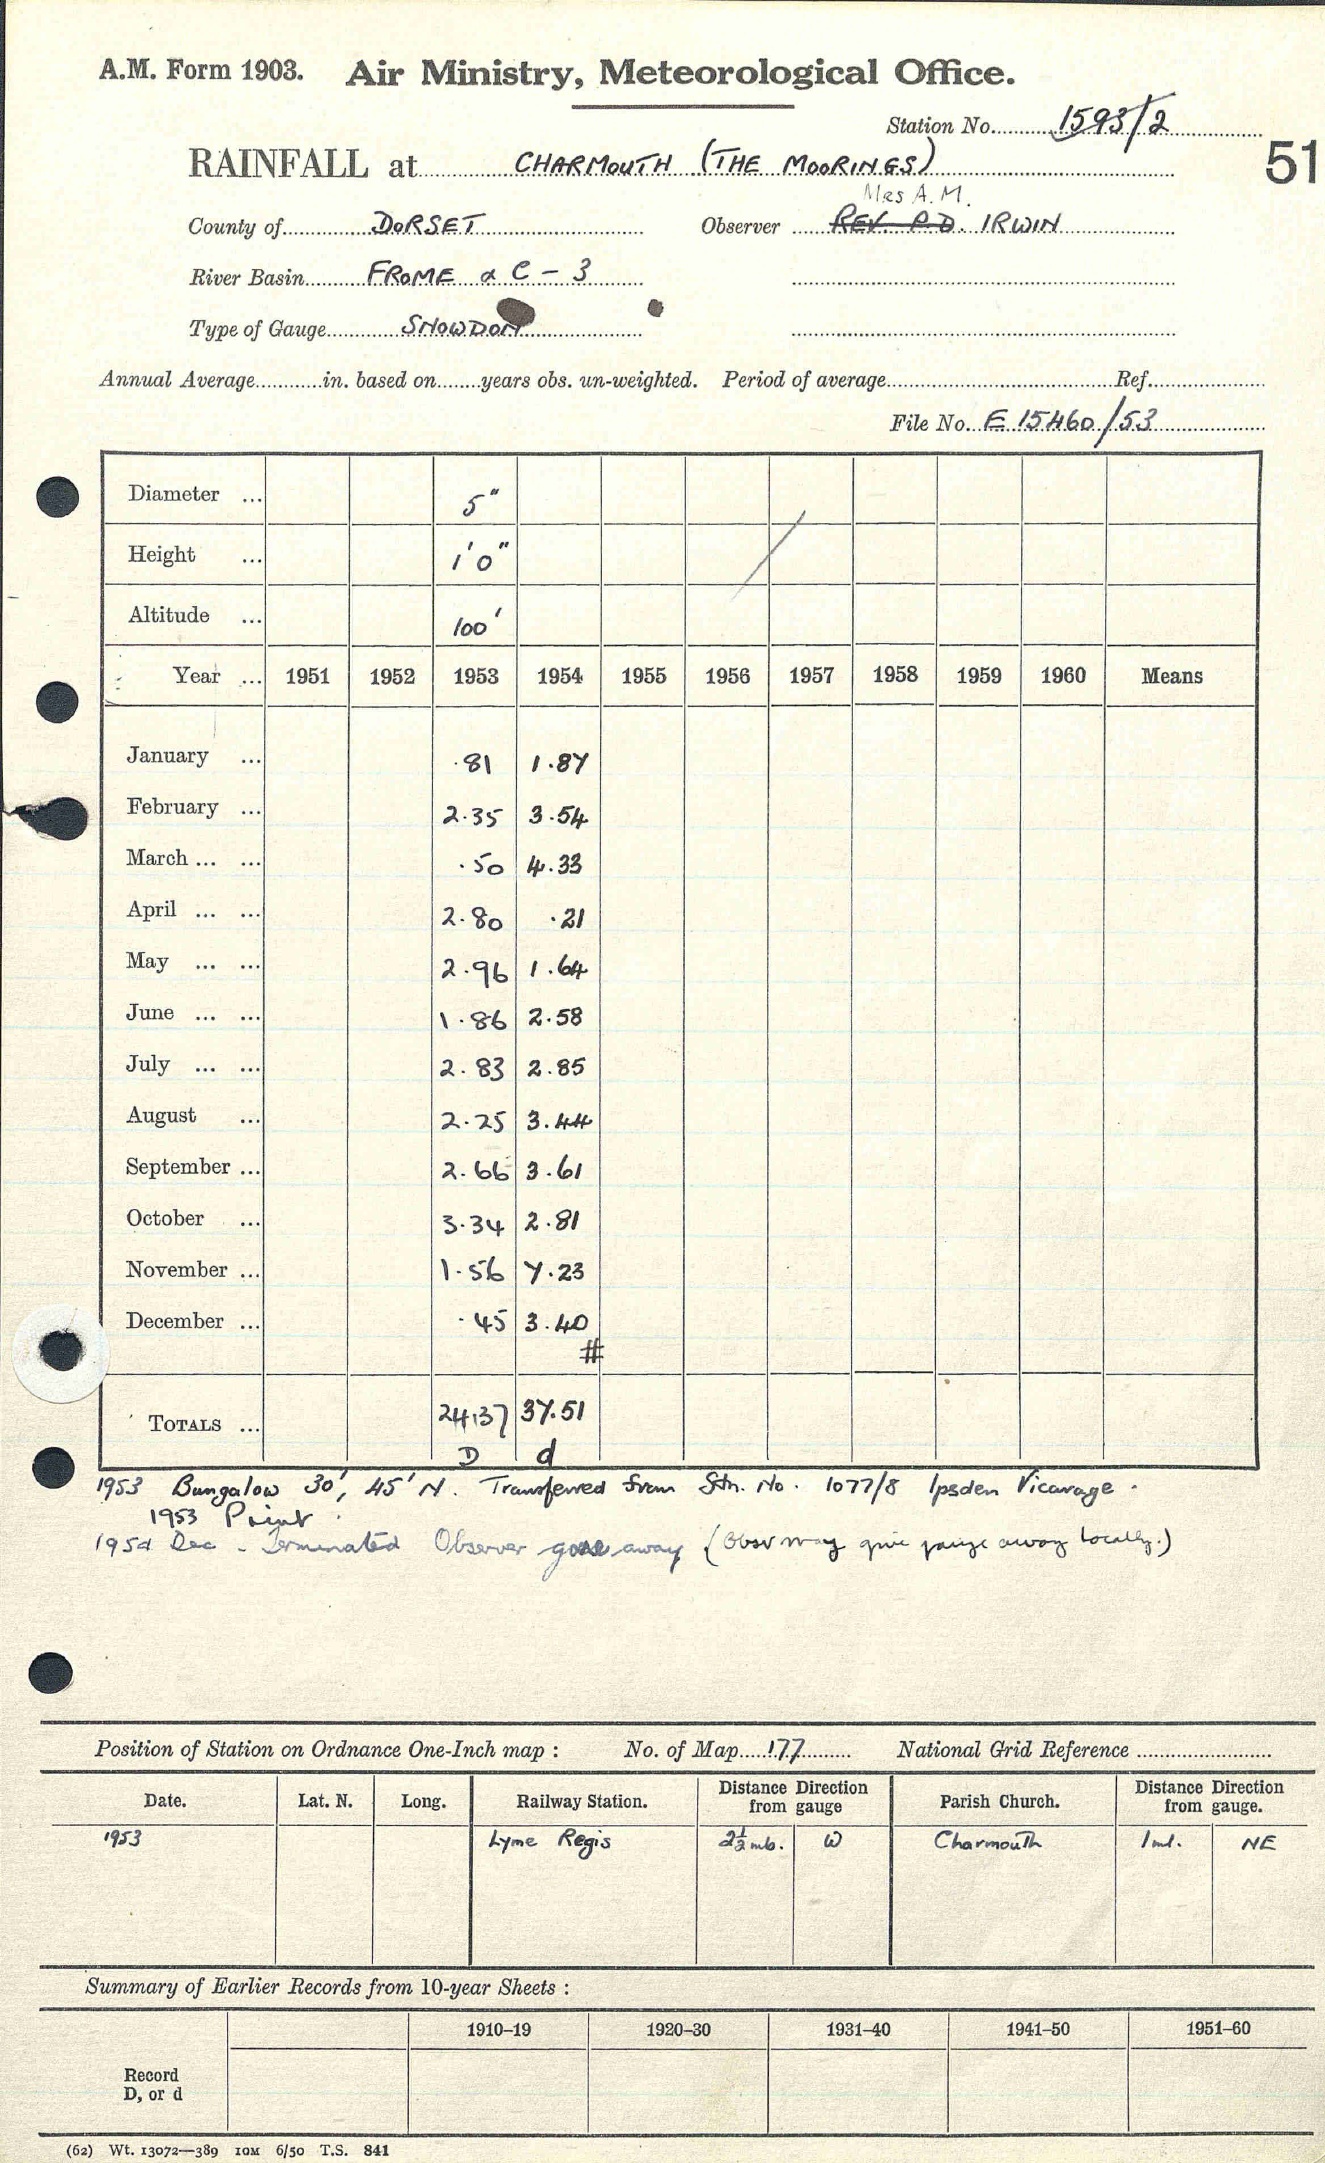 A.M. Form 1903. Air Ministry, Meteorological Office.
Station No. 1593/2
51
RAINFALL at CHARMOUTH (THE MOORINGS)
Mrs A.M.
County of DORSET Observer REV. P.D. IRWIN
River Basin FROME & C - 3
Type of Gauge SNOWDON
Annual Average in. based on years obs. un-weighted. Period of average Ref.
File No. E 15460/53
Diameter ... 5"
Height ... 1'0"
Altitude ... 100'
Year ... 1951 1952 1953 1954 1955 1956 1957 1958 1959 1960 Means
January ... .81 1.87
February ... 2.35 3.54
March ... ... .50 4.33
April ... ... 2.80 .21
May ... ... 2.96 1.64
June ... ... 1.86 2.58
July ... ... 2.83 2.85
August ... 2.25 3.44
September ... 2.66 3.61
October ... 3.34 2.81
November ... 1.56 7.23
December ... .45 3.40
#
TOTALS ... 24.37 37.51
D d
1953 Bungalow 30', 45' N. Transferred from Stn. No. 1077/8 Ipsden Vicarage.
1953 Paint
1954 Dec - Terminated Observer gone away (Obsv may give gauge away locally.)
Position of Station on Ordnance One-Inch map : No. of Map 177 National Grid Reference
Date. Lat. N. Long. Railway Station. Distance Direction from gauge Parish Church. Distance Direction from gauge.
1953 Lyme Regis 2½ mls. W Charmouth 1 ml. NE
Summary of Earlier Records from 10-year Sheets :
1910–19 1920–30 1931–40 1941–50 1951–60
Record
D, or d
(62) Wt. 13072—389 10M 6/50 T.S. 841